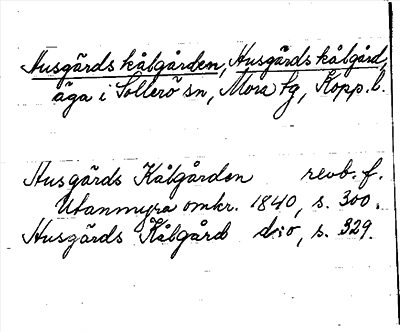 Husgärds kålgården, Husgärds kålgård,
äga i Sollerö sn, Mora tg, Kopp. l.
Husgärds Kålgården revb. f.
Utanmyra omkr. 1840, s. 300.
Husgärds Kålgård d:o, s. 329.